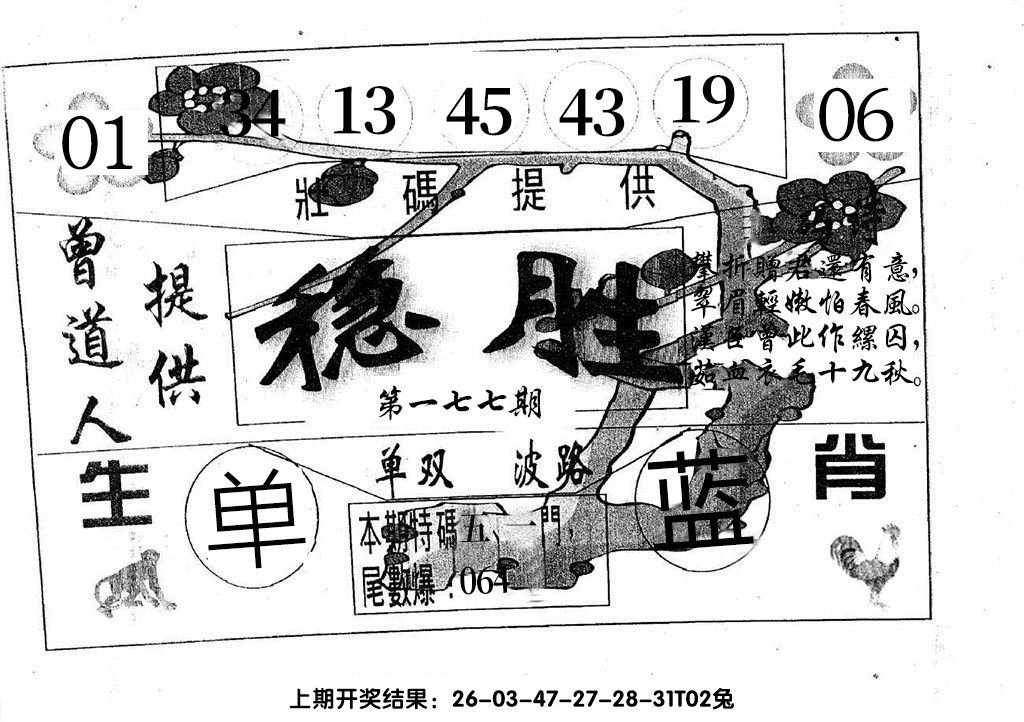 01 34 13 45 43 19 06
壯碼提供
曾道人
提供
特
稳胜
第一七七期
攀折贈君還有意，
翠眉輕嫩怕春風。
漢臣曾此作縲囚，
茹血衣毛十九秋。
单双 波路
生肖
单
蓝
本期特碼五、一門，
尾數爆：064
上期开奖结果：26-03-47-27-28-31T02兔